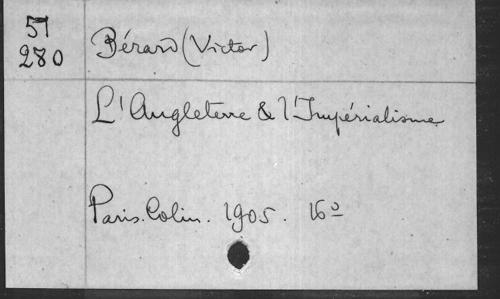 51
280
Bérard (Victor)
L'Angleterre & l'Impérialisme
Paris. Colin. 1905. 16º